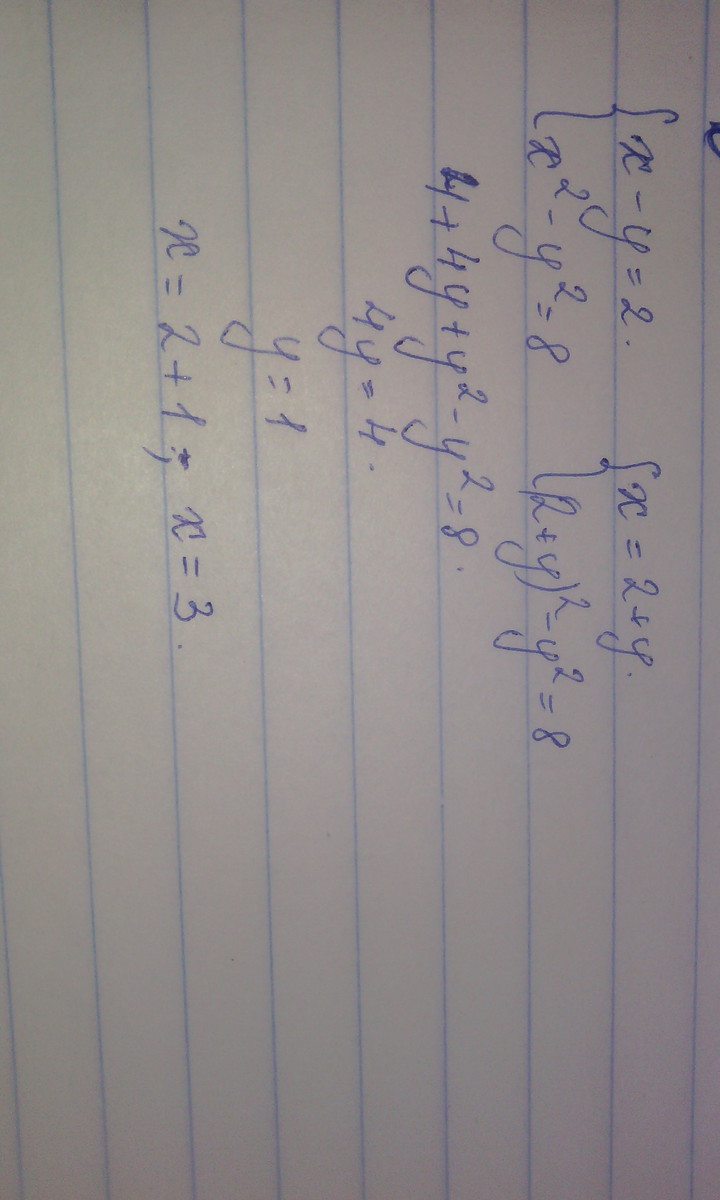 { x - y = 2. { x = 2 + y.
{ x² - y² = 8 { (2 + y)² - y² = 8
4 + 4y + y² - y² = 8.
4y = 4.
y = 1
x = 2 + 1; x = 3.